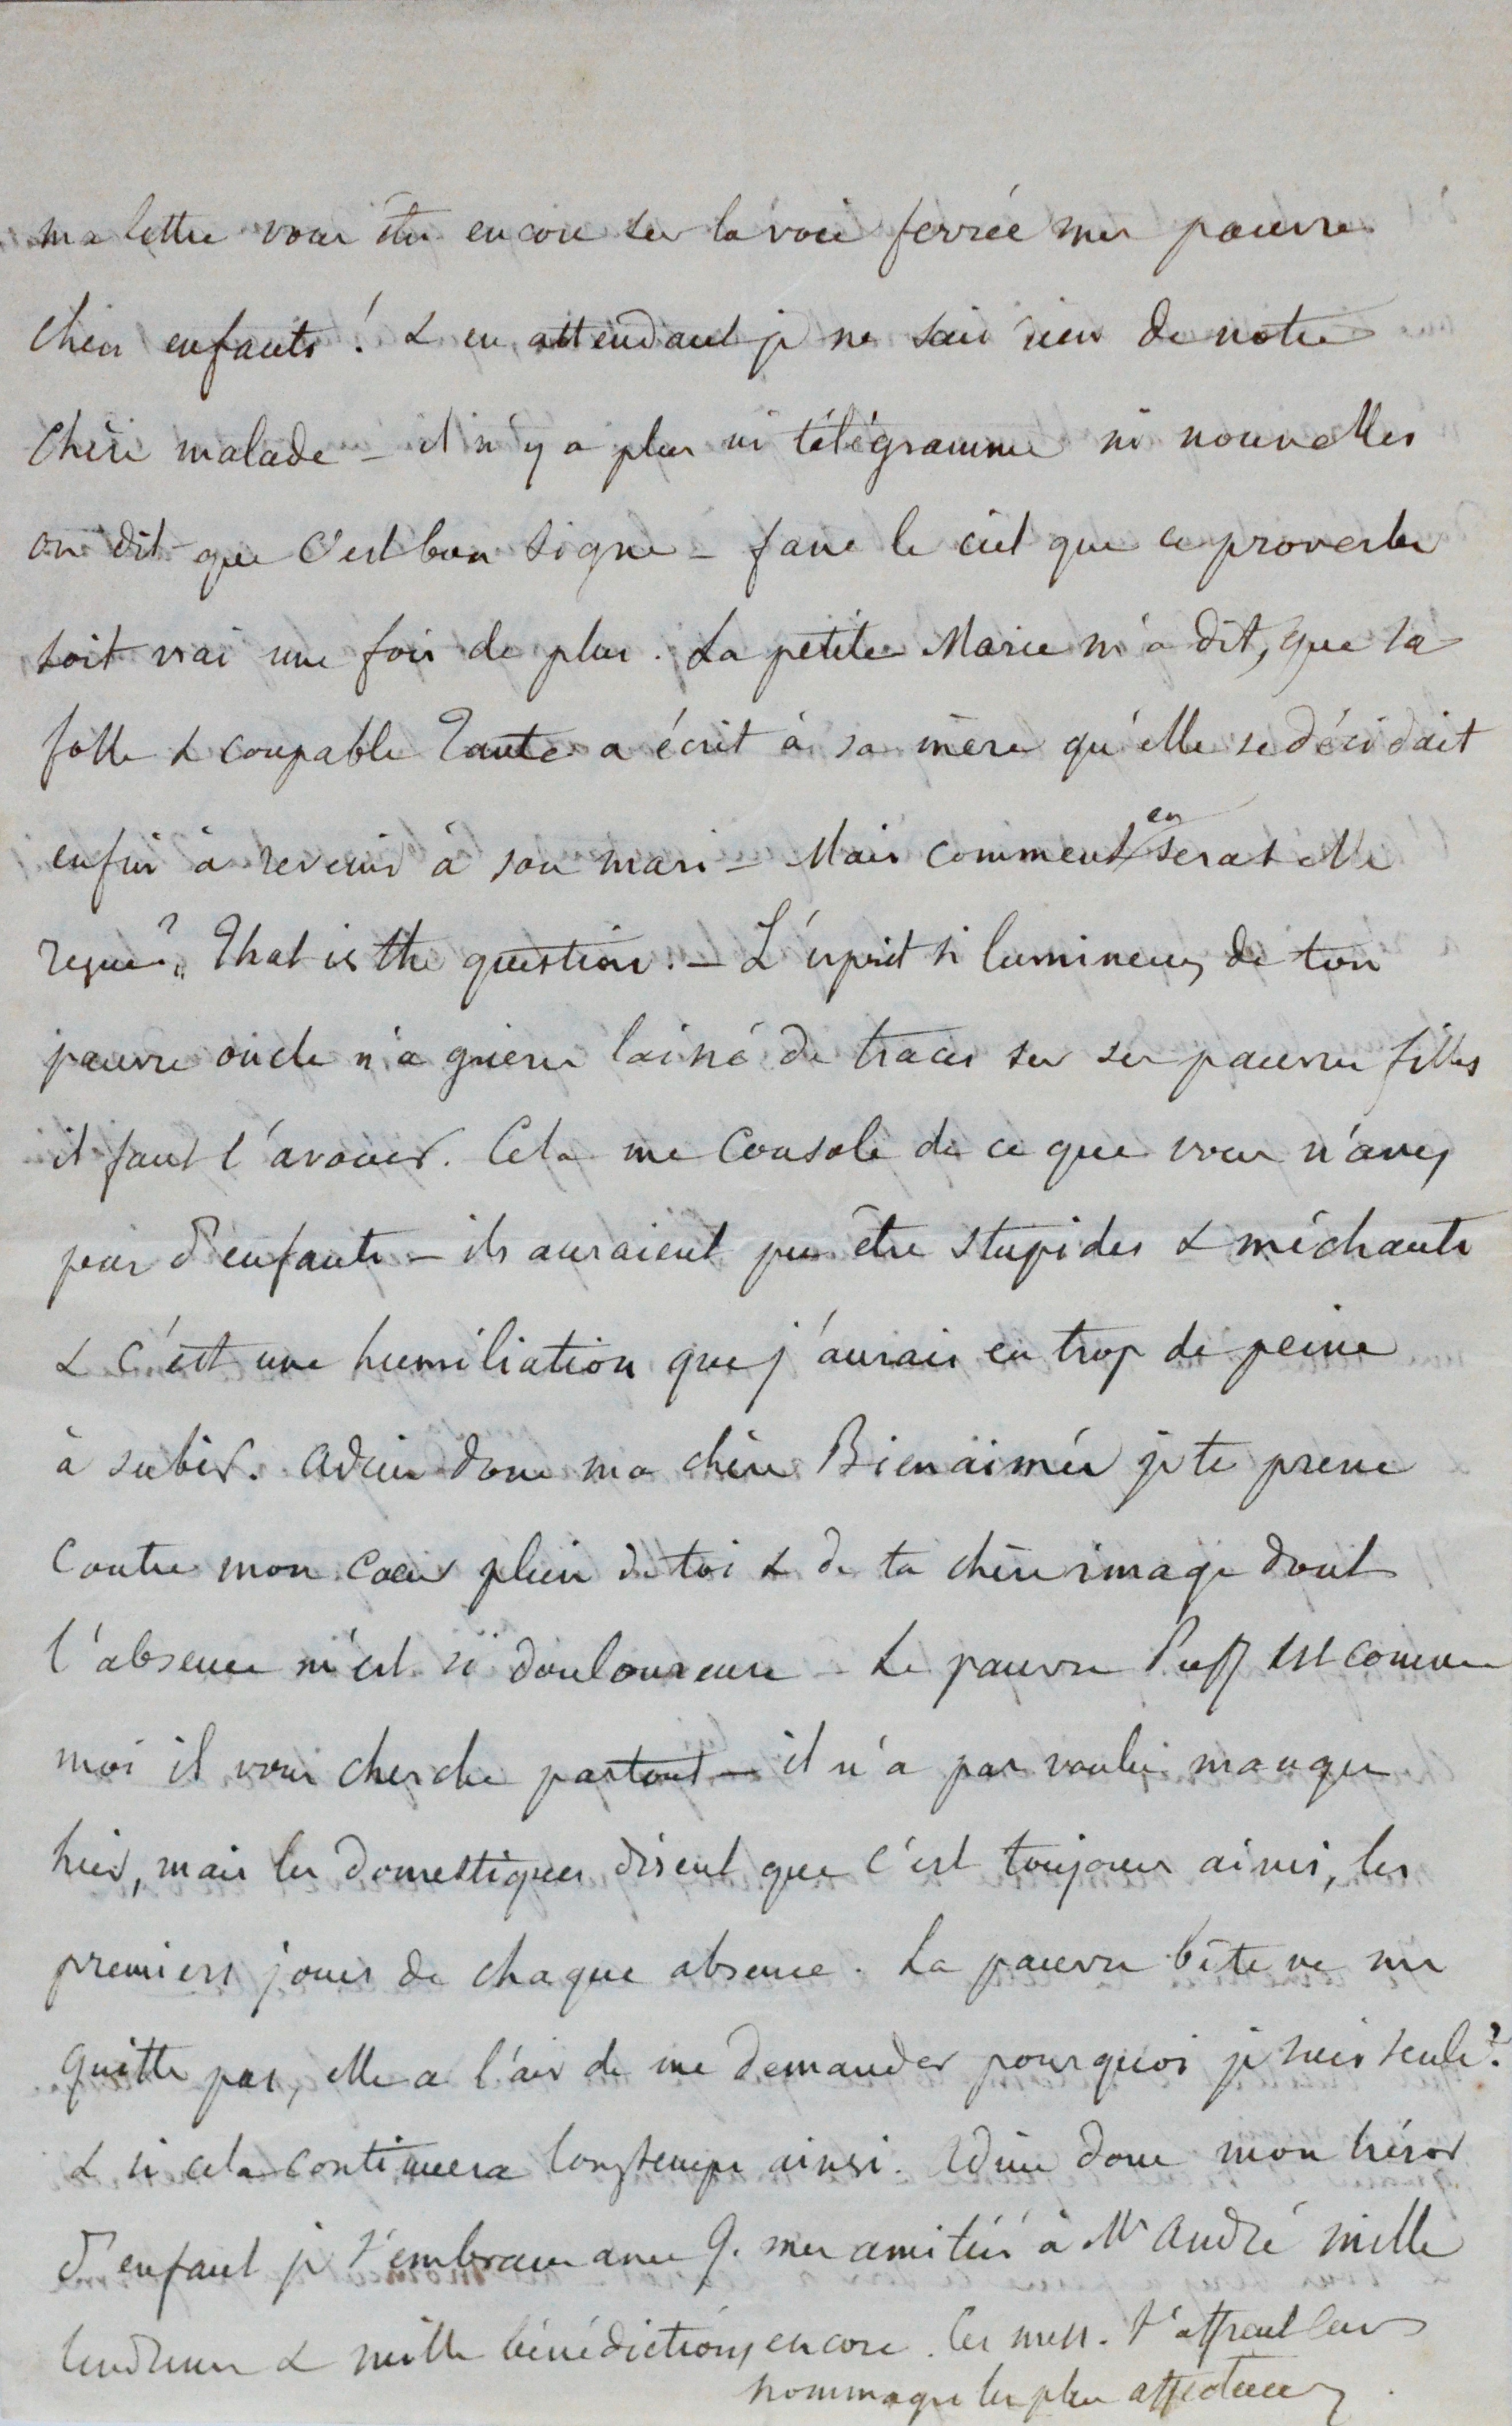 ma lettre vous êtes encore sur la voie ferrée mes pauvres
chers enfants ! & en attendant je ne sais rien de notre
chère malade – il n'y a plus ni télégramme ni nouvelles
on dit que c'est bon signe – fasse le ciel que ce proverbe
soit vrai une fois de plus. La petite Marie m'a dit, que sa
folle & coupable Tante a écrit à sa mère qu'elle se décidait
enfin à revenir à son mari – Mais comment en serat elle
reçue? „ That is the question. – L'esprit si lumineux de ton
pauvre oncle n'a guères laissé de traces sur ses pauvres filles
il faut l'avouer. Cela me console de ce que vous n'avez
pas d'enfants – ils auraient pu être stupides & méchants
& c'est une humiliation que j'aurais eu trop de peine
à subir. Adieu donc ma chère Bienaimée je te presse
contre mon cœur plein de toi & de ta chère image dont
l'absence m'est si douloureuse – Le pauvre Puff est comme
moi il vous cherche partout – il n'a pas voulu manger
hier, mais les domestiques disent que c'est toujours ainsi, les
premiers jours de chaque absence. La pauvre bête ne me
quitte pas, elle a l'air de me demander pourquoi je suis seule?
& si cela continuera longtemps ainsi. Adieu donc mon trésor
d'enfant je t'embrasse avec G. mes amitiés à Mr André mille
tendresses & mille bénédictions encore. Ces mess. t'offrent leurs
hommages les plus affectueux.